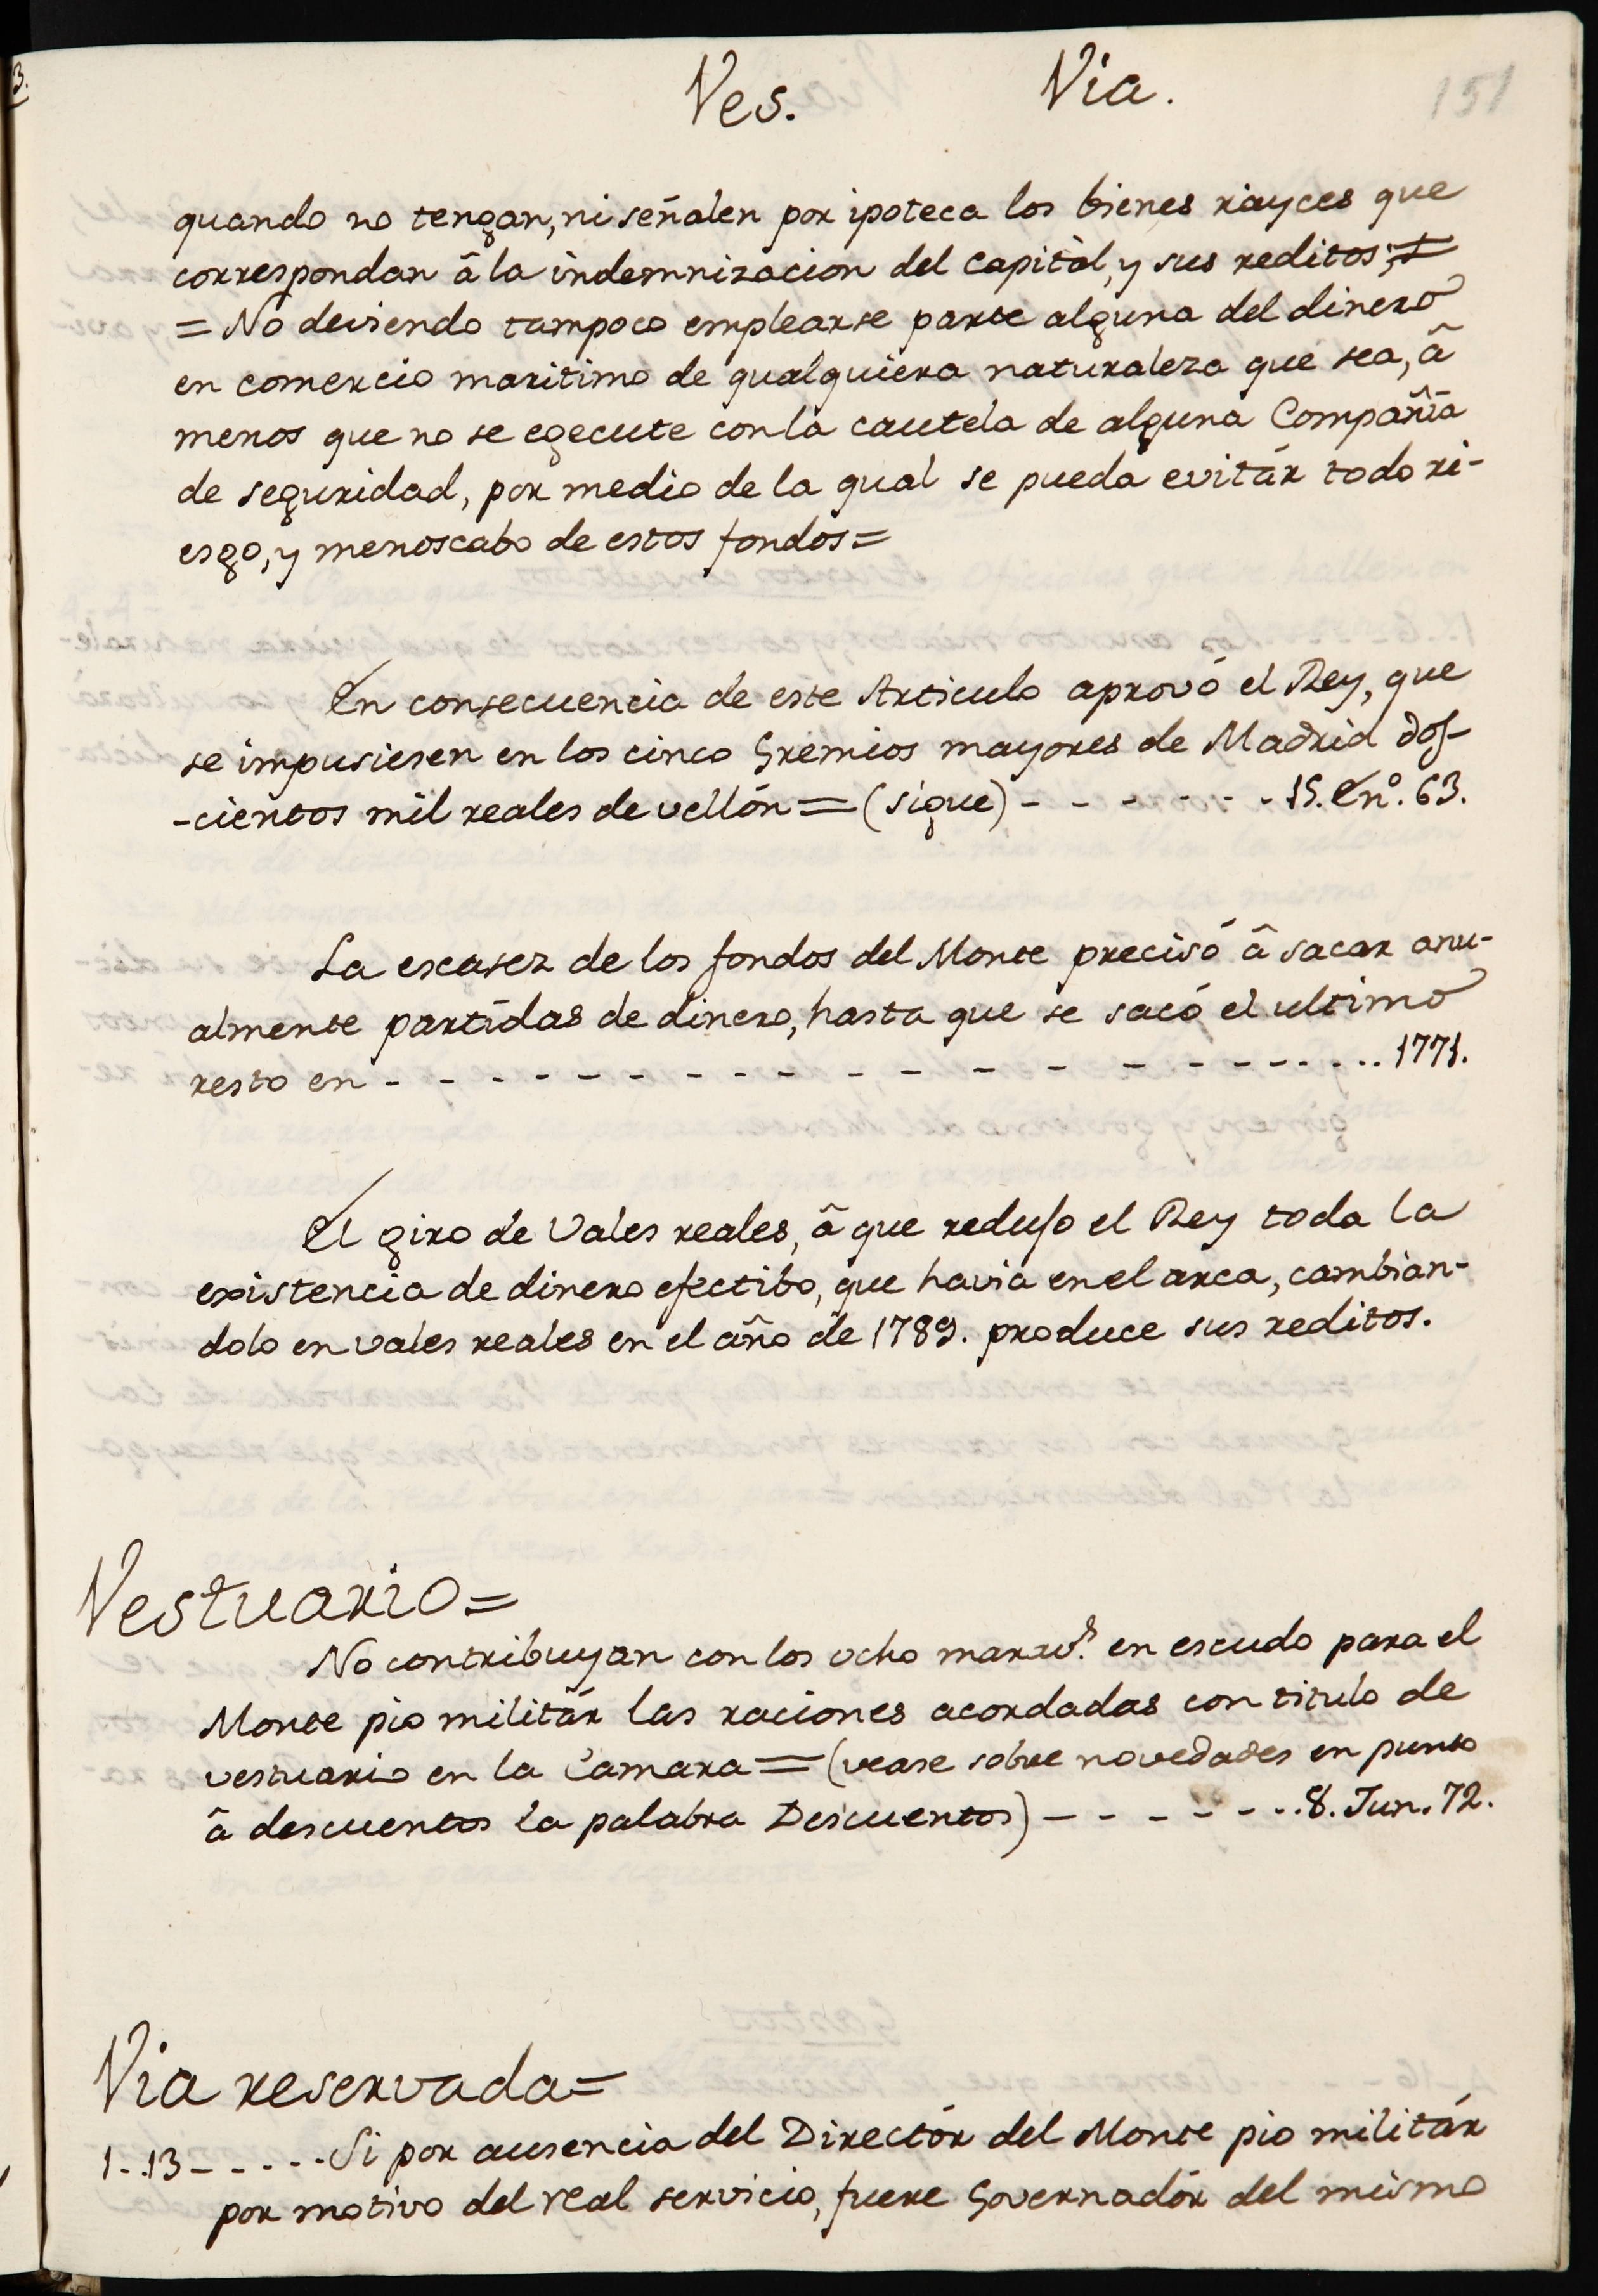 Ves. Via. 151
quando no tengan, ni señalen por ipoteca los bienes rayces que
correspondan â la indemnizacion del capitàl, y sus reditos;
= No deviendo tampoco emplearse parte alguna del dinero
en comercio maritimo de qualquiera naturaleza que sea, â
menos que no se egecute con la cautela de alguna Compañia
de seguridad, por medio de la qual se pueda evitár todo ri-
esgo, y menoscabo de estos fondos=
En consecuencia de este Articulo aprovó el Rey, que
se impusiesen en los cinco Gremios mayores de Madrid dos-
-cientos mil reales de vellón = (sigue) - - - - - - - 15. En.º 63.
La escasez de los fondos del Monte precisó â sacar anu-
almente partidas de dinero, hasta que se sacó el ultimo
resto en - - - - - - - - - - - - - - - - - - - - 1771.
El giro de Vales reales, â que redujo el Rey toda la
existencia de dinero efectibo, que havia en el arca, cambian-
dolo en vales reales en el año de 1789. produce sus reditos.
Vestuario=
No contribuyan con los ocho marav.s en escudo para el
Monte pio militár las raciones acordadas con titulo de
vestuario en la Camara = (vease sobre novedades en punto
â descuentos la palabra Descuentos) - - - - - - - 8. Jun. 72.
Via reservada=
1..13 - - - - - Si por ausencia del Directór del Monte pio militár
por motivo del real servicio, fuere Governadór del mismo